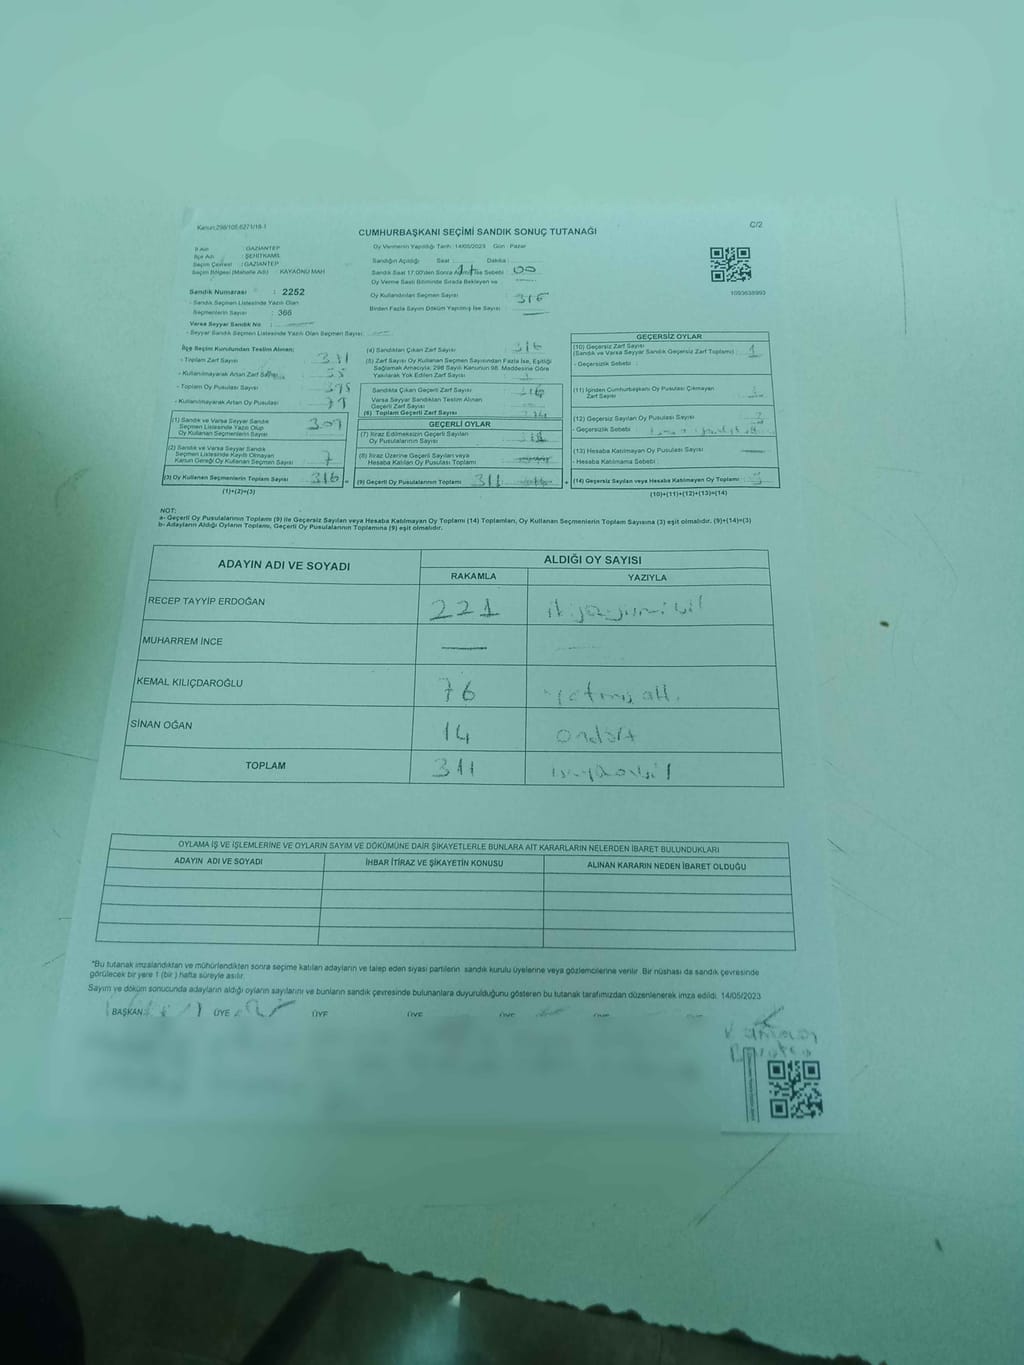 Kanun:298/105,6271/18-1
C/2
CUMHURBAŞKANI SEÇİMİ SANDIK SONUÇ TUTANAĞI
İl Adı : GAZİANTEP
İlçe Adı : ŞEHİTKAMİL
Seçim Çevresi : GAZİANTEP
Seçim Bölgesi (Mahalle Adı) : KAYAÖNÜ MAH
Sandık Numarası : 2252
- Sandık Seçmen Listesinde Yazılı Olan
Seçmenlerin Sayısı : 366
Varsa Seyyar Sandık No
- Seyyar Sandık Seçmen Listesinde Yazılı Olan Seçmen Sayısı
Oy Vermenin Yapıldığı Tarih :14/05/2023 Gün : Pazar
Sandığın Açıldığı Saat Dakika
Sandık Saat 17.00'den Sonra Açılmış İse Sebebi 00
Oy Verme Saati Bitiminde Sırada Bekleyen ve
Oy Kullandırılan Seçmen Sayısı 316
Birden Fazla Sayım Döküm Yapılmış İse Sayısı
1093638993
İlçe Seçim Kurulundan Teslim Alınan;
- Toplam Zarf Sayısı
- Kullanılmayarak Artan Zarf Sayısı
- Toplam Oy Pusulası Sayısı 395
- Kullanılmayarak Artan Oy Pusulası 79
(1) Sandık ve Varsa Seyyar Sandık
Seçmen Listesinde Yazılı Olup
Oy Kullanan Seçmenlerin Sayısı 309
(2) Sandık ve Varsa Seyyar Sandık
Seçmen Listesinde Kayıtlı Olmayan
Kanun Gereği Oy Kullanan Seçmen Sayısı 7
(3) Oy Kullanan Seçmenlerin Toplam Sayısı 316
(1)+(2)=(3)
(4) Sandıktan Çıkan Zarf Sayısı 316
(5) Zarf Sayısı Oy Kullanan Seçmen Sayısından Fazla İse, Eşitliği
Sağlamak Amacıyla; 298 Sayılı Kanunun 98. Maddesine Göre
Yakılarak Yok Edilen Zarf Sayısı
Sandıkta Çıkan Geçerli Zarf Sayısı 316
Varsa Seyyar Sandıktan Teslim Alınan
Geçerli Zarf Sayısı
(6) Toplam Geçerli Zarf Sayısı
GEÇERLİ OYLAR
(7) İtiraz Edilmeksizin Geçerli Sayılan
Oy Pusulalarının Sayısı
(8) İtiraz Üzerine Geçerli Sayılan veya
Hesaba Katılan Oy Pusulası Toplamı
(9) Geçerli Oy Pusulalarının Toplamı 311
GEÇERSİZ OYLAR
(10) Geçersiz Zarf Sayısı
(Sandık ve Varsa Seyyar Sandık Geçersiz Zarf Toplamı) 1
- Geçersizlik Sebebi
(11) İçinden Cumhurbaşkanı Oy Pusulası Çıkmayan
Zarf Sayısı
(12) Geçersiz Sayılan Oy Pusulası Sayısı
- Geçersizlik Sebebi
(13) Hesaba Katılmayan Oy Pusulası Sayısı
- Hesaba Katılmama Sebebi
(14) Geçersiz Sayılan veya Hesaba Katılmayan Oy Toplamı
(10)+(11)+(12)+(13)=(14)
NOT:
a- Geçerli Oy Pusulalarının Toplamı (9) ile Geçersiz Sayılan veya Hesaba Katılmayan Oy Toplamı (14) Toplamları, Oy Kullanan Seçmenlerin Toplam Sayısına (3) eşit olmalıdır. (9)+(14)=(3)
b- Adayların Aldığı Oyların Toplamı, Geçerli Oy Pusulalarının Toplamına (9) eşit olmalıdır.
ADAYIN ADI VE SOYADI ALDIĞI OY SAYISI
RAKAMLA YAZIYLA
RECEP TAYYİP ERDOĞAN 221
MUHARREM İNCE
KEMAL KILIÇDAROĞLU 76
SİNAN OĞAN 14 ondört
TOPLAM 311
OYLAMA İŞ VE İŞLEMLERİNE VE OYLARIN SAYIM VE DÖKÜMÜNE DAİR ŞİKAYETLERLE BUNLARA AİT KARARLARIN NELERDEN İBARET BULUNDUKLARI
ADAYIN ADI VE SOYADI İHBAR İTİRAZ VE ŞİKAYETİN KONUSU ALINAN KARARIN NEDEN İBARET OLDUĞU
*Bu tutanak imzalandıktan ve mühürlendikten sonra seçime katılan adayların ve talep eden siyasi partilerin sandık kurulu üyelerine veya gözlemcilerine verilir. Bir nüshası da sandık çevresinde
görülecek bir yere 1 (bir ) hafta süreyle asılır.
Sayım ve döküm sonucunda adayların aldığı oyların sayılarını ve bunların sandık çevresinde bulunanlara duyurulduğunu gösteren bu tutanak tarafımızdan düzenlenerek imza edildi. 14/05/2023
BAŞKAN ÜYE ÜYE ÜYE ÜYE ÜYE